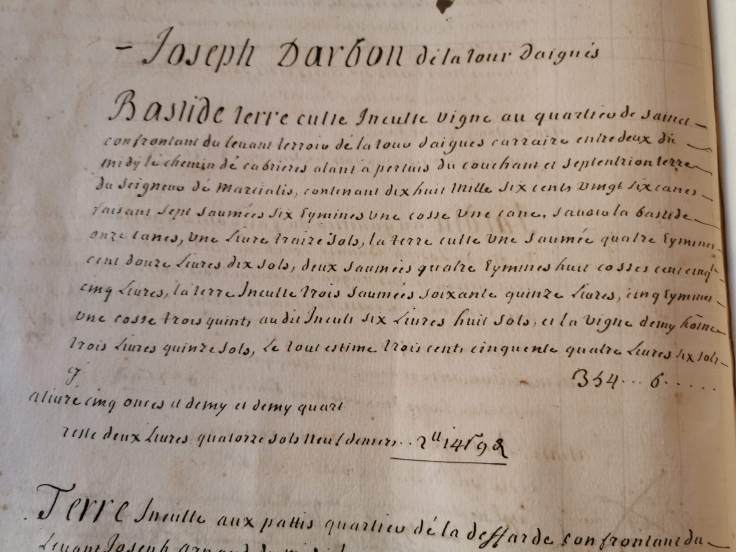 – Joseph Darbon de la tour daigués
Bastide terre culte Inculte vigne au quartier de sainct –
confrontant du levant terroir de la tour daigues carraire entre deux du
midy le chemin de cabrieres alant a pertuis du couchant et septentrion terre
du seigneur de Marcialis, contenant dix huit Mille six cents vingt six canes
faisant sept saumées six Eymines une cosse une cane, scavoir la bastide
onze canes, une Livre traize sols, la terre culte une saumée quatre Eymines
cent douze Livres dix sols, deux saumées quatre Eymines huit cosses cent cinqte
cinq Livres, la terre Inculte trois saumées soixante quinze Livres, cinq Eymines
une cosse trois quints audit Incult six Livres huit sols, et la vigne demy
trois Livres quinze sols, Le tout estime trois cents cinquente quatre Livres six sols
354 . . . 6 . . . . .
alivré cinq onces et demy et demy quart
reste deux Livres quatorze sols neuf deniers . . 2ll 14s 9d
Terre Inculte aux pattis quartier de la deffarde confrontant du
Levant Joseph arnaud